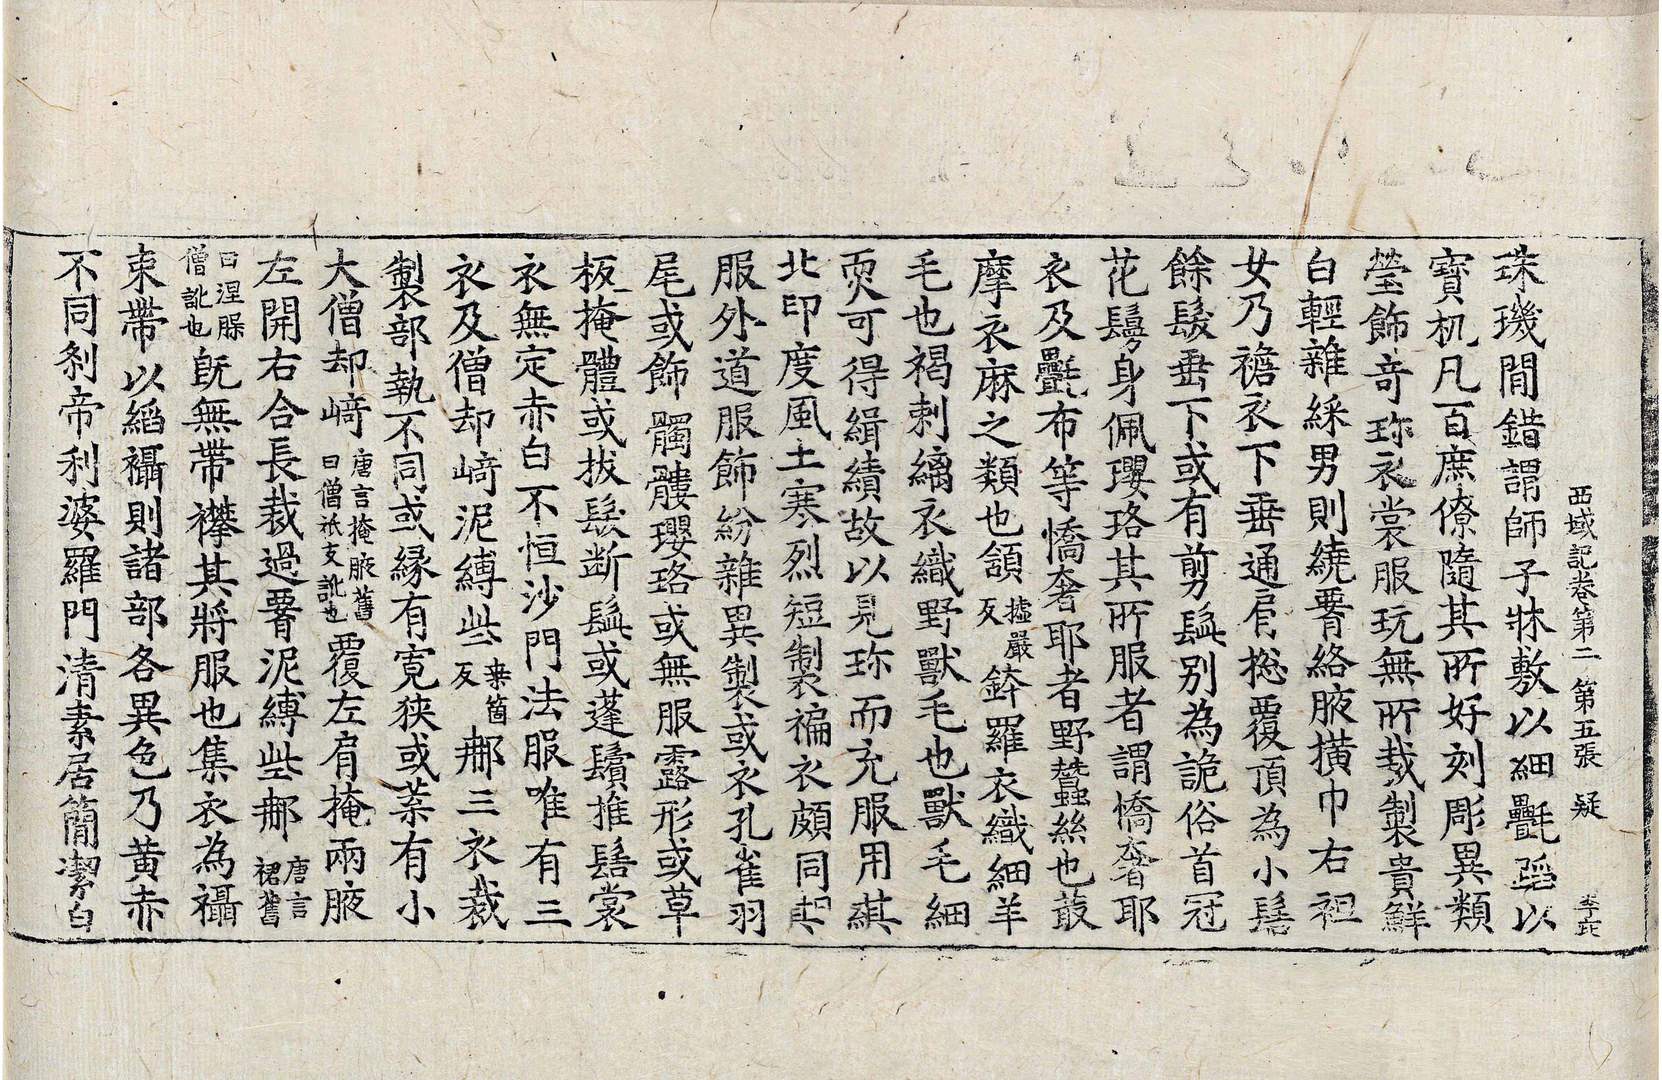 西域記卷第二 第五張 疑
珠璣間錯謂師子牀敷以細㲲蹈以
寶机凡百庶僚隨其所好刻彫異類
瑩飾奇珎衣裳服玩無所裁製貴鮮
白輕雜綵男則繞𦝫絡腋橫巾右袒
女乃襜衣下垂通肩揔覆頂為小髻
餘髮垂下或有剪髭别為詭俗首冠
花鬘身佩瓔珞其所服者謂憍奢耶
衣及㲲布等憍奢耶者野蠶絲也菆
摩衣麻之類也頷 墟嚴反 鉢羅衣織細羊
毛也褐剌縭衣織野獸毛也獸毛細
耎可得緝績故以見珎而充服用其
北印度風土寒烈短製褊衣頗同胡
服外道服飾紛雜異製或衣孔雀羽
尾或飾髑髏瓔珞或無服露形或草
板掩體或拔髮断髭或蓬鬢椎髻裳
衣無定赤白不恒沙門法服唯有三
衣及僧却崎泥縛些 桒箇反 䣯三衣裁
製部執不同或緣有寬狹或葉有小
大僧却崎 唐言掩腋舊曰僧祇支訛也 覆左肩掩兩腋
左開右合長裁過𦝫泥縛些䣯 唐言裙舊
曰涅槃僧訛也 旣無帶襻其將服也集衣為襵
束帶以縚襵則諸部各異色乃黄赤
不同剎帝利婆羅門清素居簡潔白